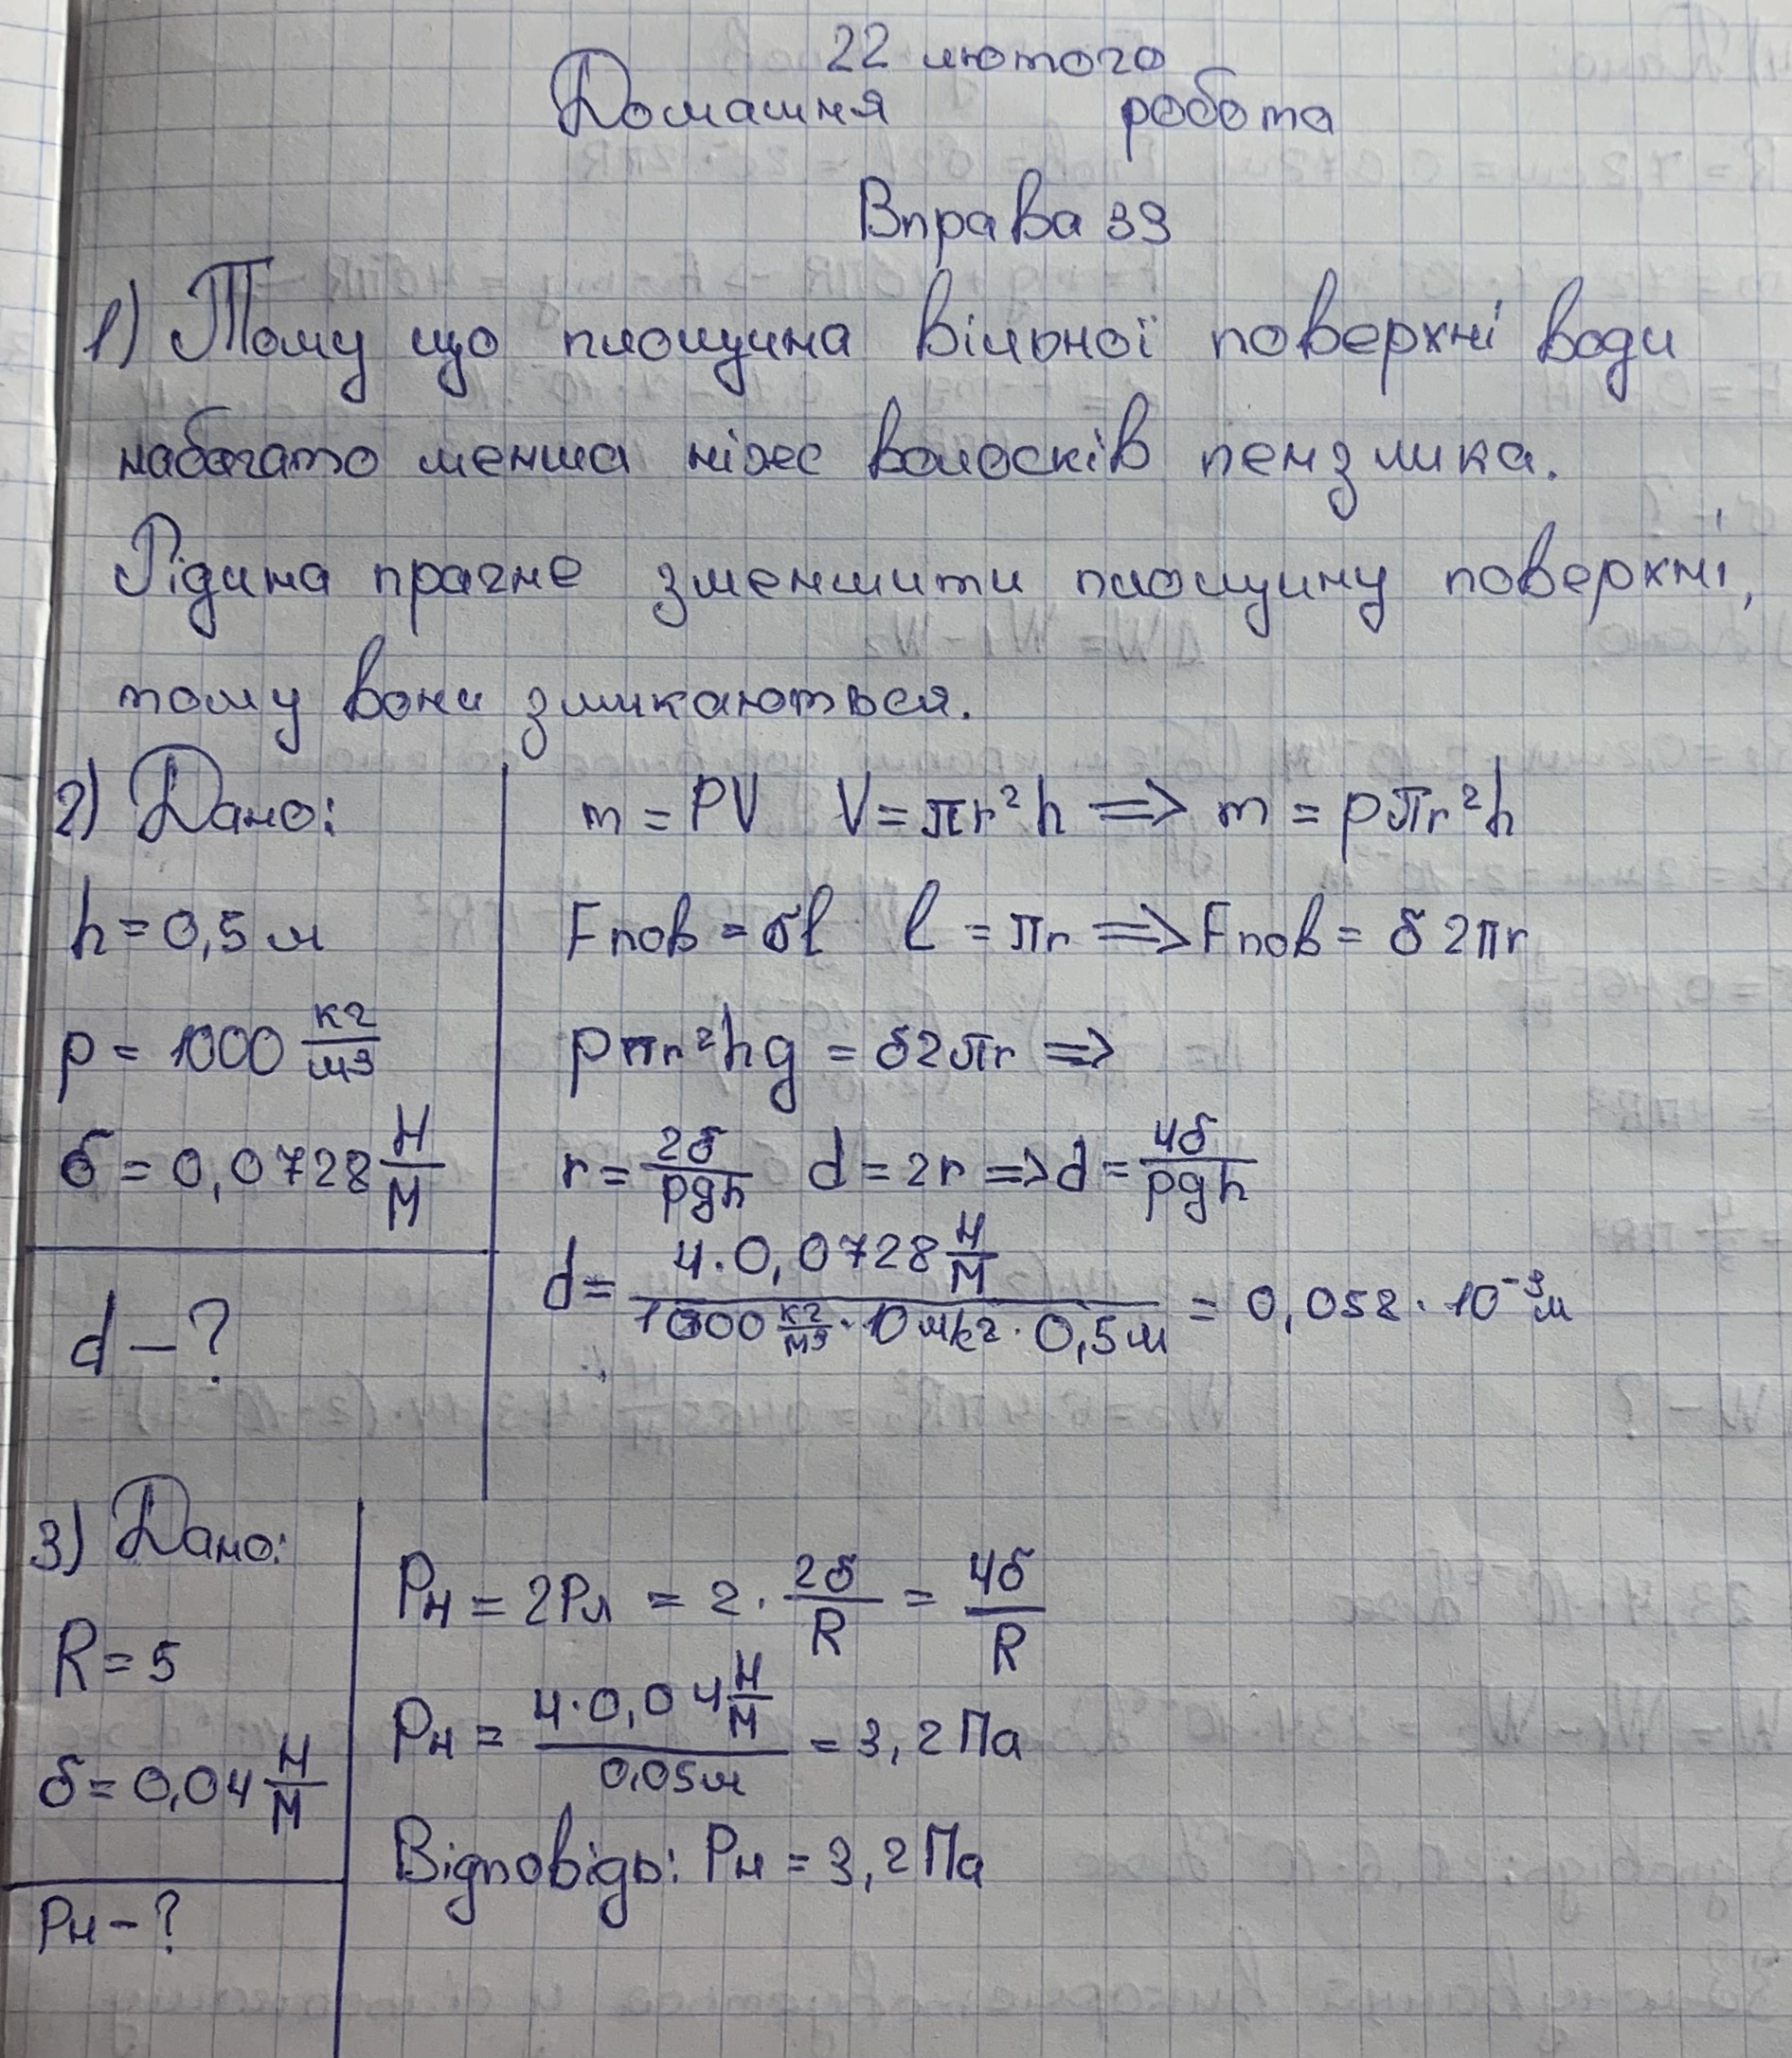 22 лютого
Домашня робота
Вправа 39
1) Тому що площина вільної поверхні води
набагато менша ніж волосків пензлика.
Рідина прагне зменшити площину поверхні,
тому вони змикаються.
2) Дано:
h = 0,5 м
ρ = 1000 кг/м3
б = 0,0728 Н/М
d - ?
m = PV V = πr²h => m = ρπr²h
Fпов = бl l = πr => Fпов = б2πr
ρπr²hg = б2πr =>
r = 2б/ρgh d = 2r => d = 4б/ρgh
d = 4·0,0728 Н/М / 1000 кг/м3 · 10 н/кг · 0,5 м = 0,058 · 10⁻³ м
3) Дано:
R = 5
б = 0,04 Н/М
Pн - ?
Pн = 2Pл = 2 · 2б/R = 4б/R
Pн = 4·0,04 Н/М / 0,05 м = 3,2 Па
Відповідь: Pн = 3,2 Па